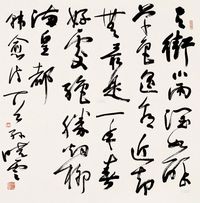 天街小雨潤如酥
草色遙看近却
無最是一年春
好處絕勝煙柳
滿皇都
韓愈詩 孫曉雲